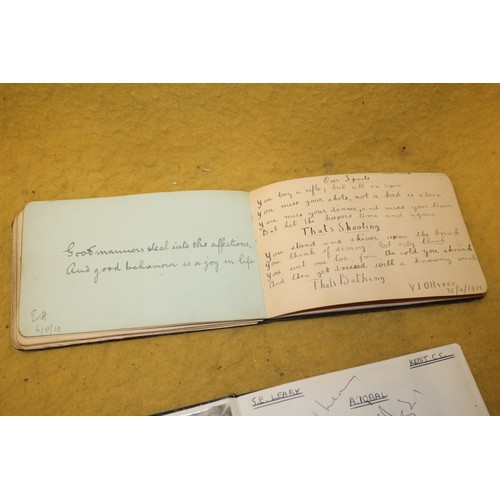 Good manners steal into the affections,
And good behaviour is a joy in life
EA
Our Sports
You buy a rifle, but all in vain
You miss your shots, not a bird is slain
You miss your dinner, and miss your
But hit the keepers time and again
Thats Shooting
You stand and shiver upon the brink
You think of diving but only think
You wet one toe, from the cold you shrink
And then get dressed with a knowing wink
Thats Bathing
KENT C.C.
S.E. LEARY
A. IQBAL